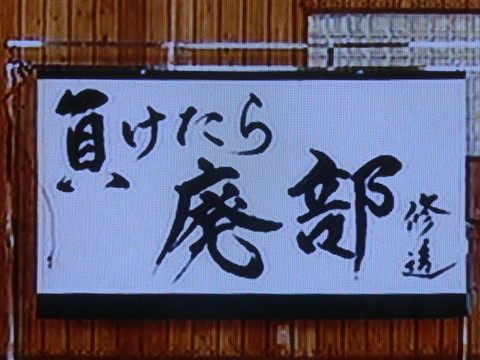 負けたら
廃部
修造